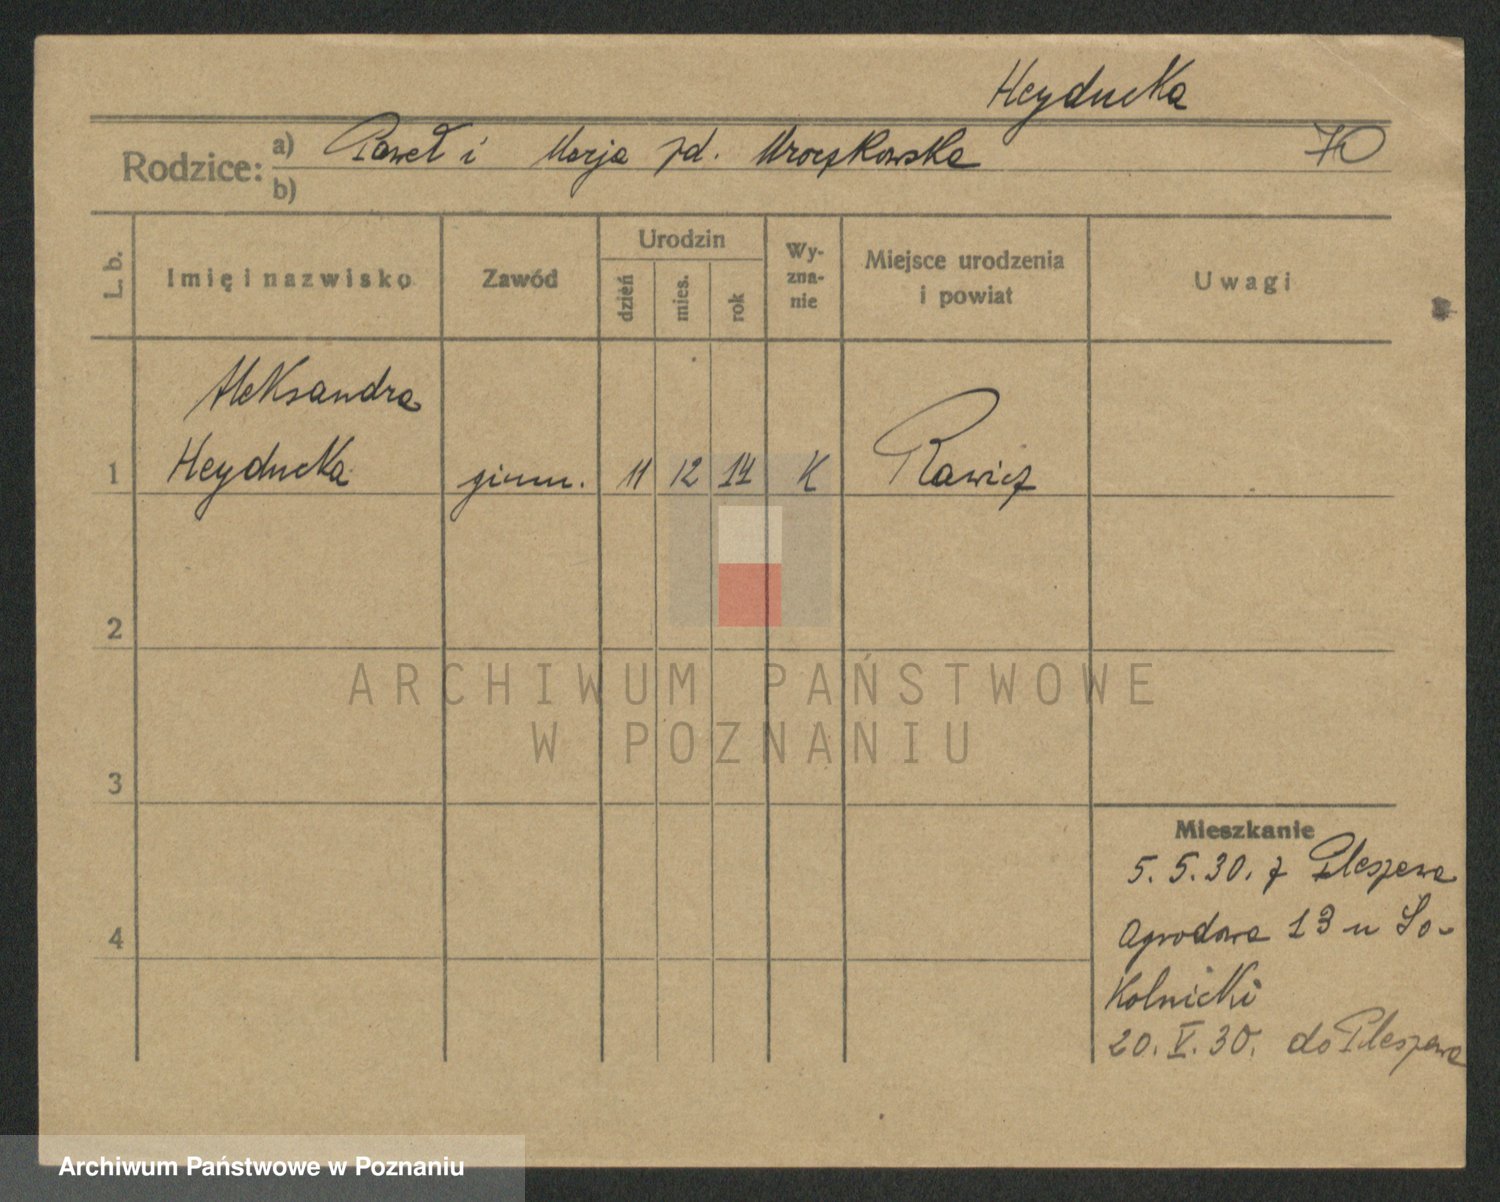 Heyducka
Rodzice: a) Paweł i Marja zd. Mroczkowska 70
b)
L. b. Imię i nazwisko Zawód Urodzin dzień mies. rok Wyzna-nie Miejsce urodzenia i powiat Uwagi
Aleksandra
1 Heyducka gimn. 11 12 14 K Rawicz
2
ARCHIWUM PAŃSTWOWE
W POZNANIU
3
Mieszkanie
5. 5. 30. z Pleszewa
4 Ogrodowa 13 u So-
kolnicki
20. V. 30. do Pleszewa
Archiwum Państwowe w Poznaniu